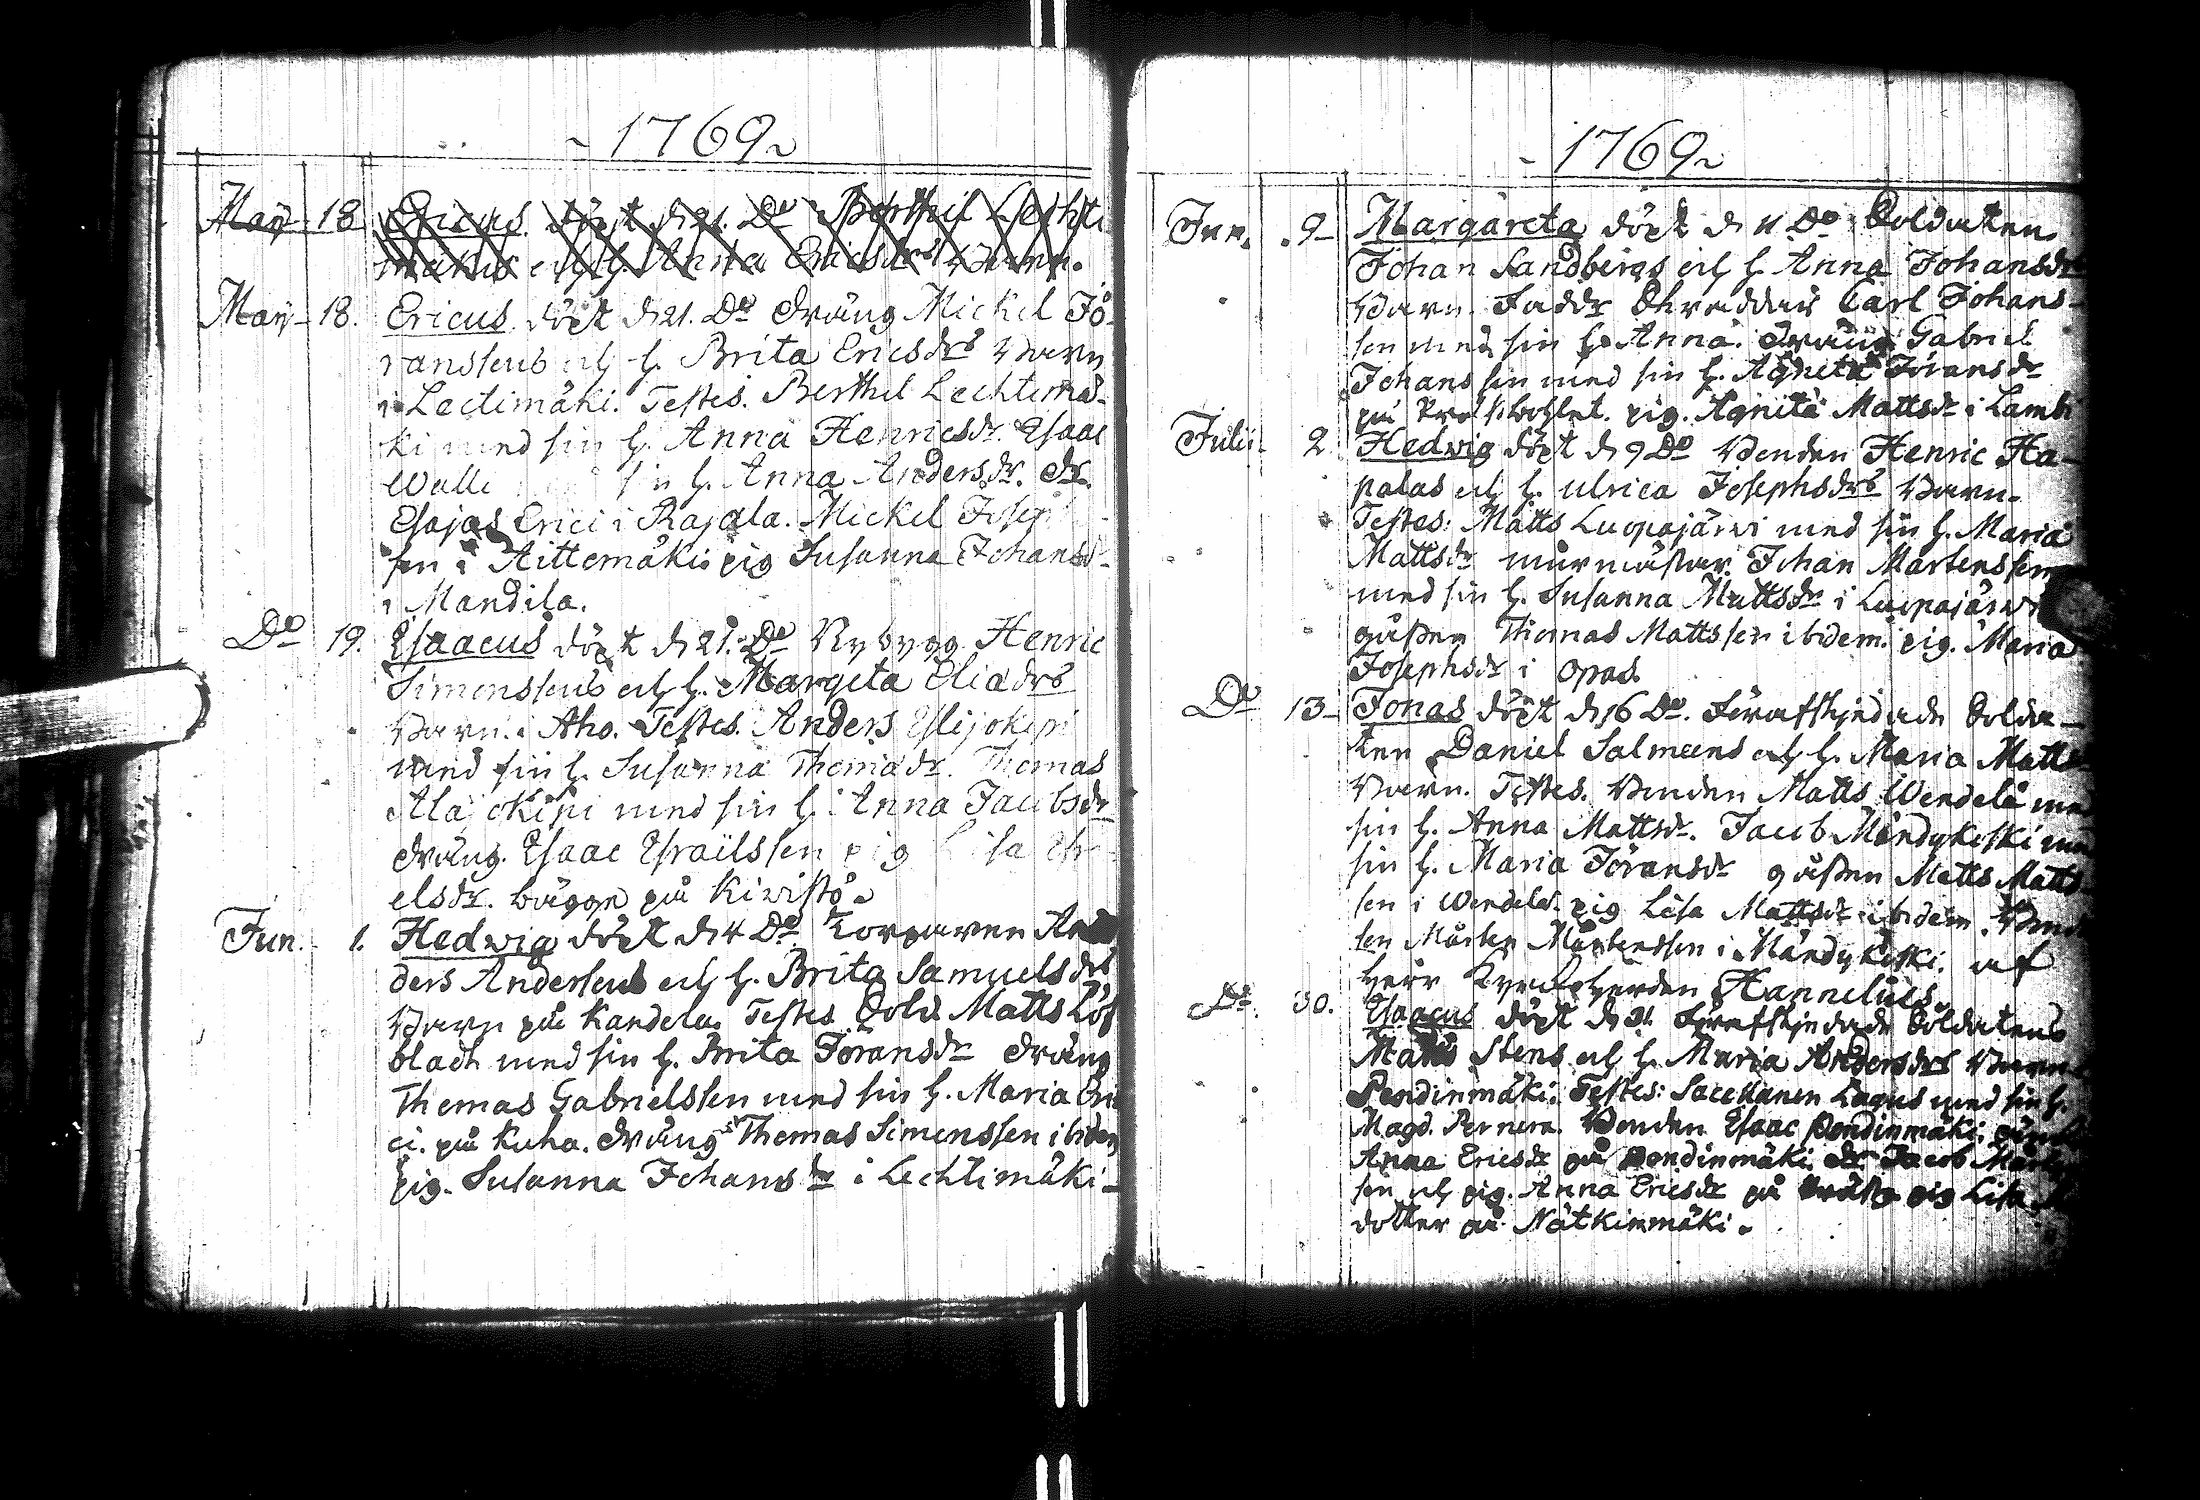 ~ 1769 ~
May - 18 Ericus döpt d. 21. Do Berthil Lechti
mäkis och h. Anna Ericsdrs Barn.
May - 18. Ericus döpt d. 21. Do Dräng Mickel Jö-
ranssens och h. Brita Ericsdrs Barn
i Lectimäki. Testes. Berthel Lechtimä-
ki med sin h. Anna Henricsdr. Esaac
Walli sin h. Anna Andersdr. dr.
Esajas Erici i Rajala. Mickel Joseph
sen i Aittomäki pig Susanna Johansdr
i Mandila.
Do 19. Esaacus döpt d. 21. Do Nybygg. Henric
Simonssens och h. Margeta Eliadrs
Barn. i Aho. Testes. Anders Ylijokipi
med sin h. Susanna Thomadr. Thomas
Alajokipi med sin h. Anna Jacobsdr
dräng. Esaac Esraëlssen pig Lisa
elsdr. bägge på Kivistö.
Jun. - 1. Hedwig döpt d. 4 Do Torparen An
ders Andersens och h. Brita Samuelsdrs
Barn på Kandela. Testes Sold. Matts Löf
bladh med sin h. Brita Joransdr Dräng
Thomas Gabrielssen med sin h. Maria Eri
ci. på Kuha. Dräng Thomas Simonssen ibidem
pig. Susanna Johansdr i Lechtimäki -
- 1769 ~
Jun. 9 - Margareta döpt d. 11 Do Soldaten
Johan Sandbergs och h. Anna Johansdr
Barn. Faddr Skräddar Carl Johans-
sen med sin h. Anna. Dräng Gabriel
Johanssen med sin h. Agneta Joransdr
på. pig. Agnita Mattsdr i Lambi
Julii - 2. Hedwig döpt d. 9 Do Bonden Henric Ha-
palas och h. Ulrica Josephsdrs Barn.
Testes: Matts Luopajärvi med sin h. Maria
Mattsdr murmästar. Johan Mårtenssen
med sin h. Susanna Mattsdr i Luopajärvi
gåssen Thomas Mattssen ibidem. pig. Maria
Josephsdr i Opas.
Do 13 - Jonas döpt d. 16 Do. Förafskjedade Solda-
ten Daniel Salmeens och h. Maria Matts
Barn. Testes. Bonden Matts Wendelä med
sin h. Anna Mattsdr. Jacob Mändykoski med
sin h. Maria Joransdr gåssen Matts Matts-
sen i Wendelä. pig Lisa Mattsdr ibidem. Bond
sen Mårten Mårtenssen i Mändykoski. af
Herr Kyrkoherden Hannelius.
Do. 30. Esaacus döpt d. 31. Förafskjedade Soldatens
Matts Stens och h. Maria Andersdrs Barn
Pendinmäki. Testes: Sacellanen Lagus med sin h.
Magd. Pernera. Bonden Esaac Pendinmäki. pig
Anna Ericsdr på Pendinmäki dr Jacob Mårt
sen och pig. Anna Ericsdr på pig Lisa
dotter på Nätkinmäki.